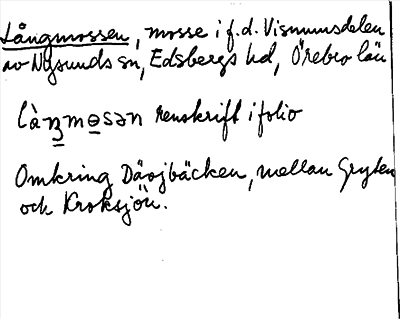 Långmossen, mosse i f.d. Vismumsdelen
av Nysunds sn, Edsbergs hd, Örebro län
renskrift i folio
Omkring mellan Gryten
och Kroksjön.